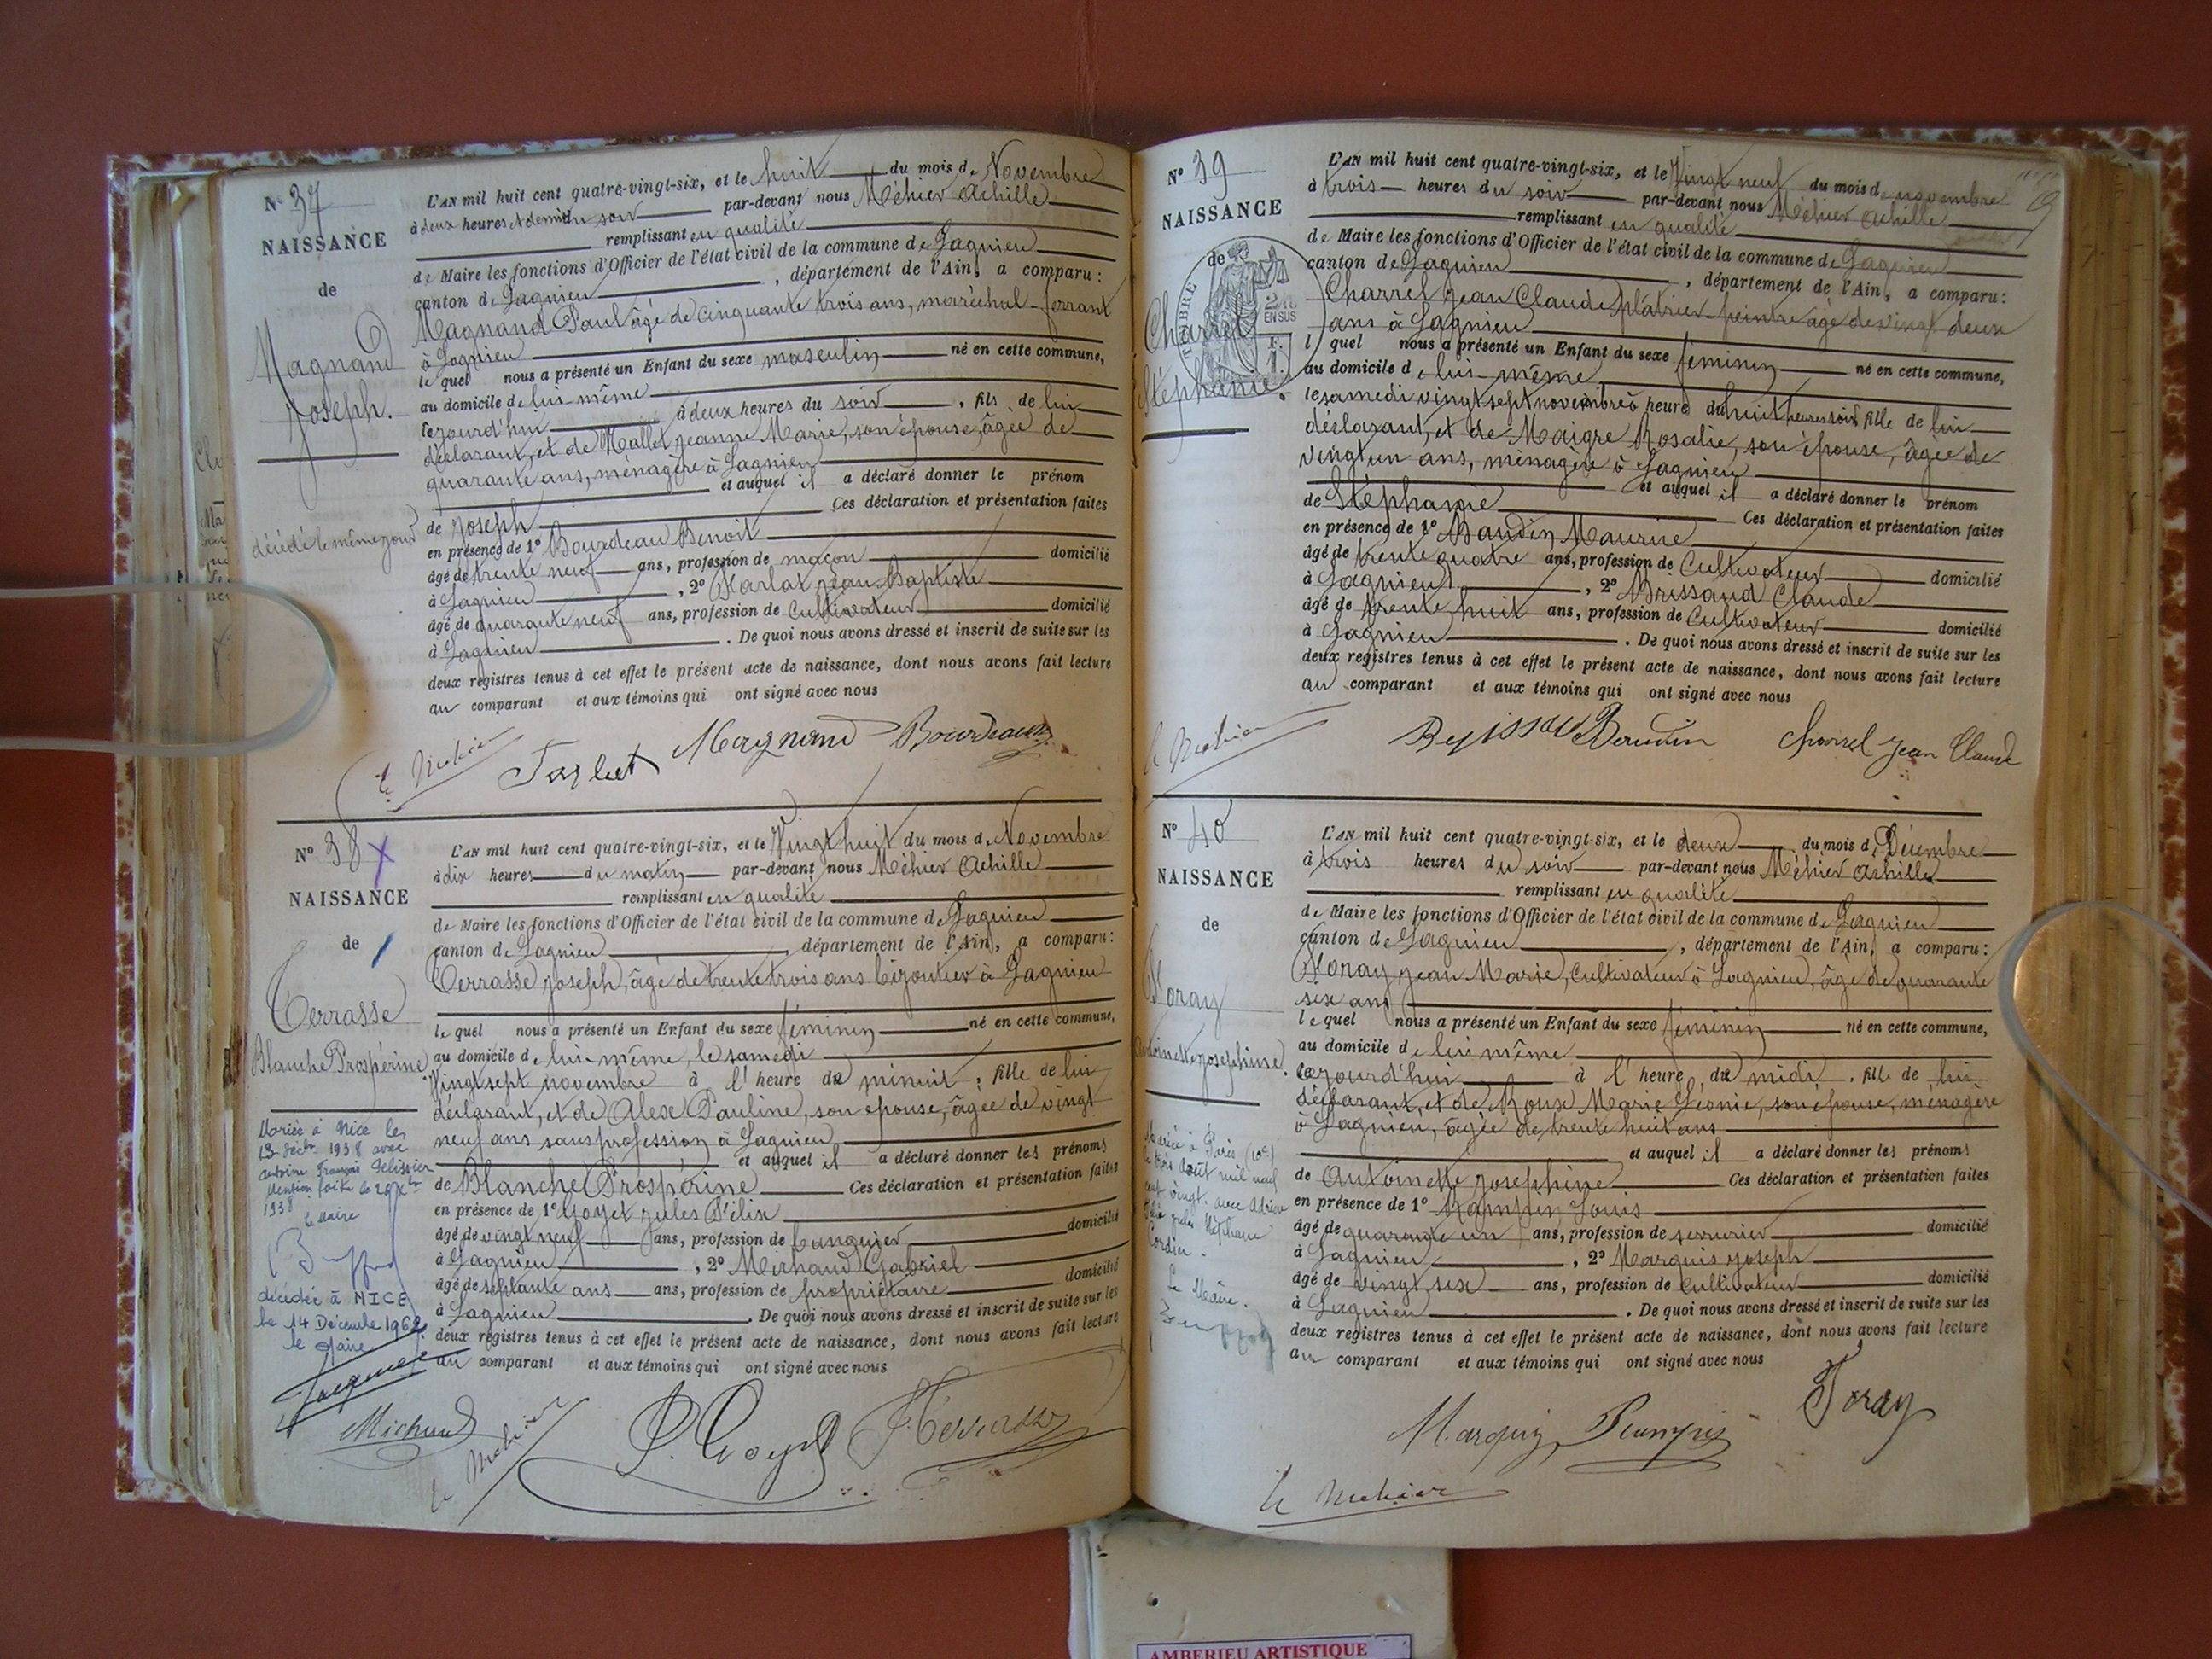 N° 37
NAISSANCE
de
Magnand
Joseph.
décédé le même jour
L'AN mil huit cent quatre-vingt-six, et le huit du mois de Novembre
à deux heures et demie du soir par-devant nous Méhier Achille
remplissant en qualité
de Maire les fonctions d'Officier de l'état civil de la commune de Lagnieu
canton de Lagnieu, département de l'Ain, a comparu:
Magnand Paul âgé de cinquante trois ans, maréchal-ferrant
à Lagnieu
lequel nous a présenté un Enfant du sexe masculin né en cette commune,
au domicile de lui-même
ce jourd'hui à deux heures du soir, fils de lui
déclarant, et de Mallet Jeanne Marie, son épouse, âgée de
quarante ans, ménagère à Lagnieu
et auquel il a déclaré donner le prénom
de Joseph Ces déclaration et présentation faites
en présence de 1° Bourdeau Benoit
âgé de trente neuf ans, profession de maçon domicilié
à Lagnieu, 2° Jean-Baptiste
âgé de quarante neuf ans, profession de Cultivateur domicilié
à Lagnieu. De quoi nous avons dressé et inscrit de suite sur les
deux registres tenus à cet effet le présent acte de naissance, dont nous avons fait lecture
au comparant et aux témoins qui ont signé avec nous
Magnand Bourdeaux
N° 38
NAISSANCE
de
Terrasse
Blanche Prospérine
Mariée à Nice le
13 déc 1938 avec
Antoine François Pélissier
Mention faite le
1938
le Maire
décédée à NICE
le 14 Décembre 1962
le Maire
L'AN mil huit cent quatre-vingt-six, et le Vingt huit du mois de Novembre
à dix heures du matin par-devant nous Méhier Achille
remplissant en qualité
de Maire les fonctions d'Officier de l'état civil de la commune de Lagnieu
canton de Lagnieu département de l'Ain, a comparu:
Terrasse Joseph, âgé de trente trois ans bijoutier à Lagnieu
lequel nous a présenté un Enfant du sexe féminin né en cette commune,
au domicile de lui-même, le samedi
Vingt sept novembre à l'heure de minuit, fille de lui
déclarant, et de Alex Pauline, son épouse, âgée de vingt
neuf ans sans profession à Lagnieu
et auquel il a déclaré donner les prénoms
de Blanche Prospérine Ces déclaration et présentation faites
en présence de 1° Goyet Jules Félix
âgé de vingt neuf ans, profession de banquier domicilié
à Lagnieu, 2° Michaud Gabriel
âgé de septante ans ans, profession de propriétaire domicilié
à Lagnieu. De quoi nous avons dressé et inscrit de suite sur les
deux registres tenus à cet effet le présent acte de naissance, dont nous avons fait lecture
au comparant et aux témoins qui ont signé avec nous
Michaud J. Goyet J. Terrasse
N° 39
NAISSANCE
de
Charrel
Stéphanie.
TIMBRE
EN SUS
L'AN mil huit cent quatre-vingt-six, et le Vingt neuf du mois de novembre
à trois heures du soir par-devant nous Méhier Achille
remplissant en qualité
de Maire les fonctions d'Officier de l'état civil de la commune de Lagnieu
canton de Lagnieu, département de l'Ain, a comparu:
Charrel Jean Claude plâtrier-peintre âgé de vingt deux
ans à Lagnieu
lequel nous a présenté un Enfant du sexe féminin né en cette commune,
au domicile de lui-même
le samedi vingt sept novembre à heure du huit heures soir, fille de lui
déclarant, et de Maigre Rosalie, son épouse, âgée de
vingt un ans, ménagère à Lagnieu
et auquel il a déclaré donner le prénom
de Stéphanie Ces déclaration et présentation faites
en présence de 1° Baudin Maurice
âgé de trente quatre ans, profession de Cultivateur domicilié
à Lagnieu, 2° Brissaud Claude
âgé de trente huit ans, profession de Cultivateur domicilié
à Lagnieu. De quoi nous avons dressé et inscrit de suite sur les
deux registres tenus à cet effet le présent acte de naissance, dont nous avons fait lecture
au comparant et aux témoins qui ont signé avec nous
Charrel Jean Claude
N° 40
NAISSANCE
de
Antoinette Josephine.
Mariée à Paris
le trois août mil neuf
cent vingt. avec
le Maire.
L'AN mil huit cent quatre-vingt-six, et le deux du mois de Décembre
à trois heures du soir par-devant nous Méhier Achille
remplissant en qualité
de Maire les fonctions d'Officier de l'état civil de la commune de Lagnieu
canton de Lagnieu, département de l'Ain, a comparu:
Jean Marie, Cultivateur à Lagnieu, âgé de quarante
six ans
lequel nous a présenté un Enfant du sexe féminin né en cette commune,
au domicile de lui même
ce jourd'hui à l'heure de midi, fille de lui
déclarant, et de Roux Marie Léonie, son épouse, ménagère
à Lagnieu, âgée de trente huit ans
et auquel il a déclaré donner les prénoms
de Antoinette Josephine Ces déclaration et présentation faites
en présence de 1° Louis
âgé de quarante un ans, profession de serrurier domicilié
à Lagnieu, 2° Marquis Joseph
âgé de vingt six ans, profession de Cultivateur domicilié
à Lagnieu. De quoi nous avons dressé et inscrit de suite sur les
deux registres tenus à cet effet le présent acte de naissance, dont nous avons fait lecture
au comparant et aux témoins qui ont signé avec nous
AMBERIEU ARTISTIQUE